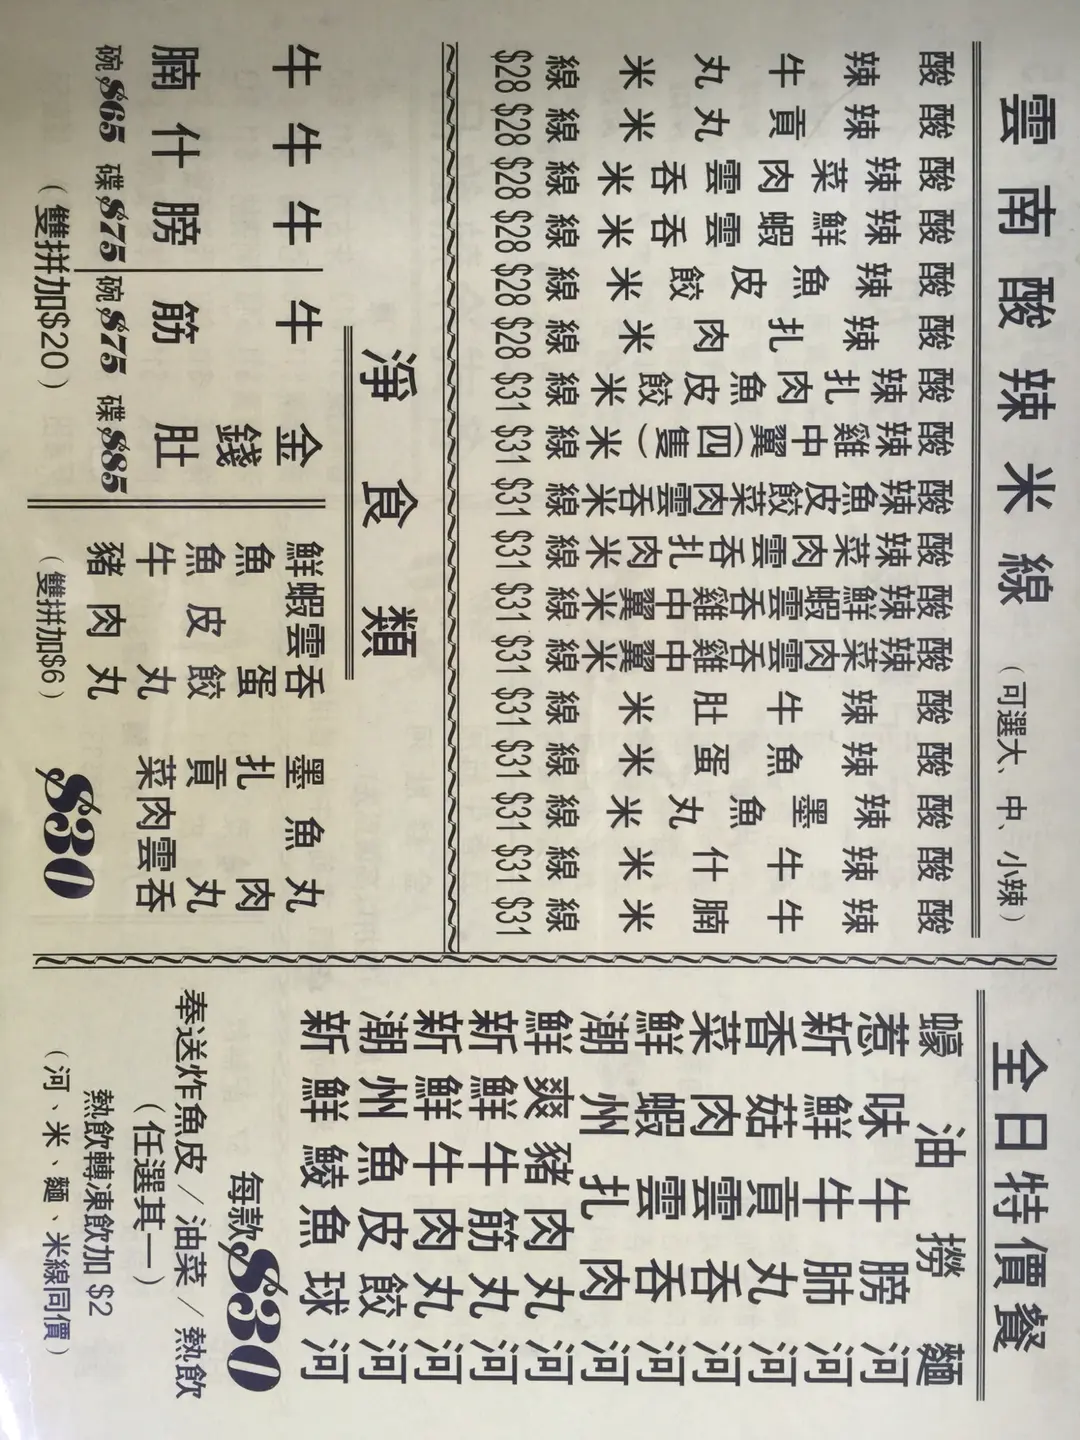 雲南酸辣米線（可選大、中、小辣）
酸辣牛丸米線 $28
酸辣貢丸米線 $28
酸辣菜肉雲吞米線 $28
酸辣鮮蝦雲吞米線 $28
酸辣魚皮餃米線 $28
酸辣扎肉米線 $28
酸辣扎肉魚皮餃米線 $31
酸辣雞中翼(四隻)米線 $31
酸辣魚皮餃菜肉雲吞米線 $31
酸辣菜肉雲吞扎肉米線 $31
酸辣鮮蝦雲吞雞中翼米線 $31
酸辣菜肉雲吞雞中翼米線 $31
酸辣牛肚米線 $31
酸辣魚蛋米線 $31
酸辣墨魚丸米線 $31
酸辣牛什米線 $31
酸辣牛腩米線 $31
淨食類
牛腩
牛什
牛膀
碗$65 碟$75
牛筋
金錢肚
碗$75 碟$85
（雙拼加$20）
鮮蝦雲吞 墨魚丸
魚蛋 扎肉
魚皮餃 貢丸
牛丸 菜肉雲吞
豬肉丸
（雙拼加$6）
$30
全日特價餐
蠔油撈麵
惹味牛膀河
新鮮牛肺河
香菇貢丸河
菜肉雲吞河
鮮蝦雲吞河
潮州扎肉河
鮮爽豬肉丸河
新鮮牛筋丸河
新鮮牛肉丸河
潮州魚皮餃河
新鮮鯪魚球河
每款$30
奉送炸魚皮/油菜/熱飲
（任選其一）
熱飲轉凍飲加 $2
（河、米、麵、米線同價）